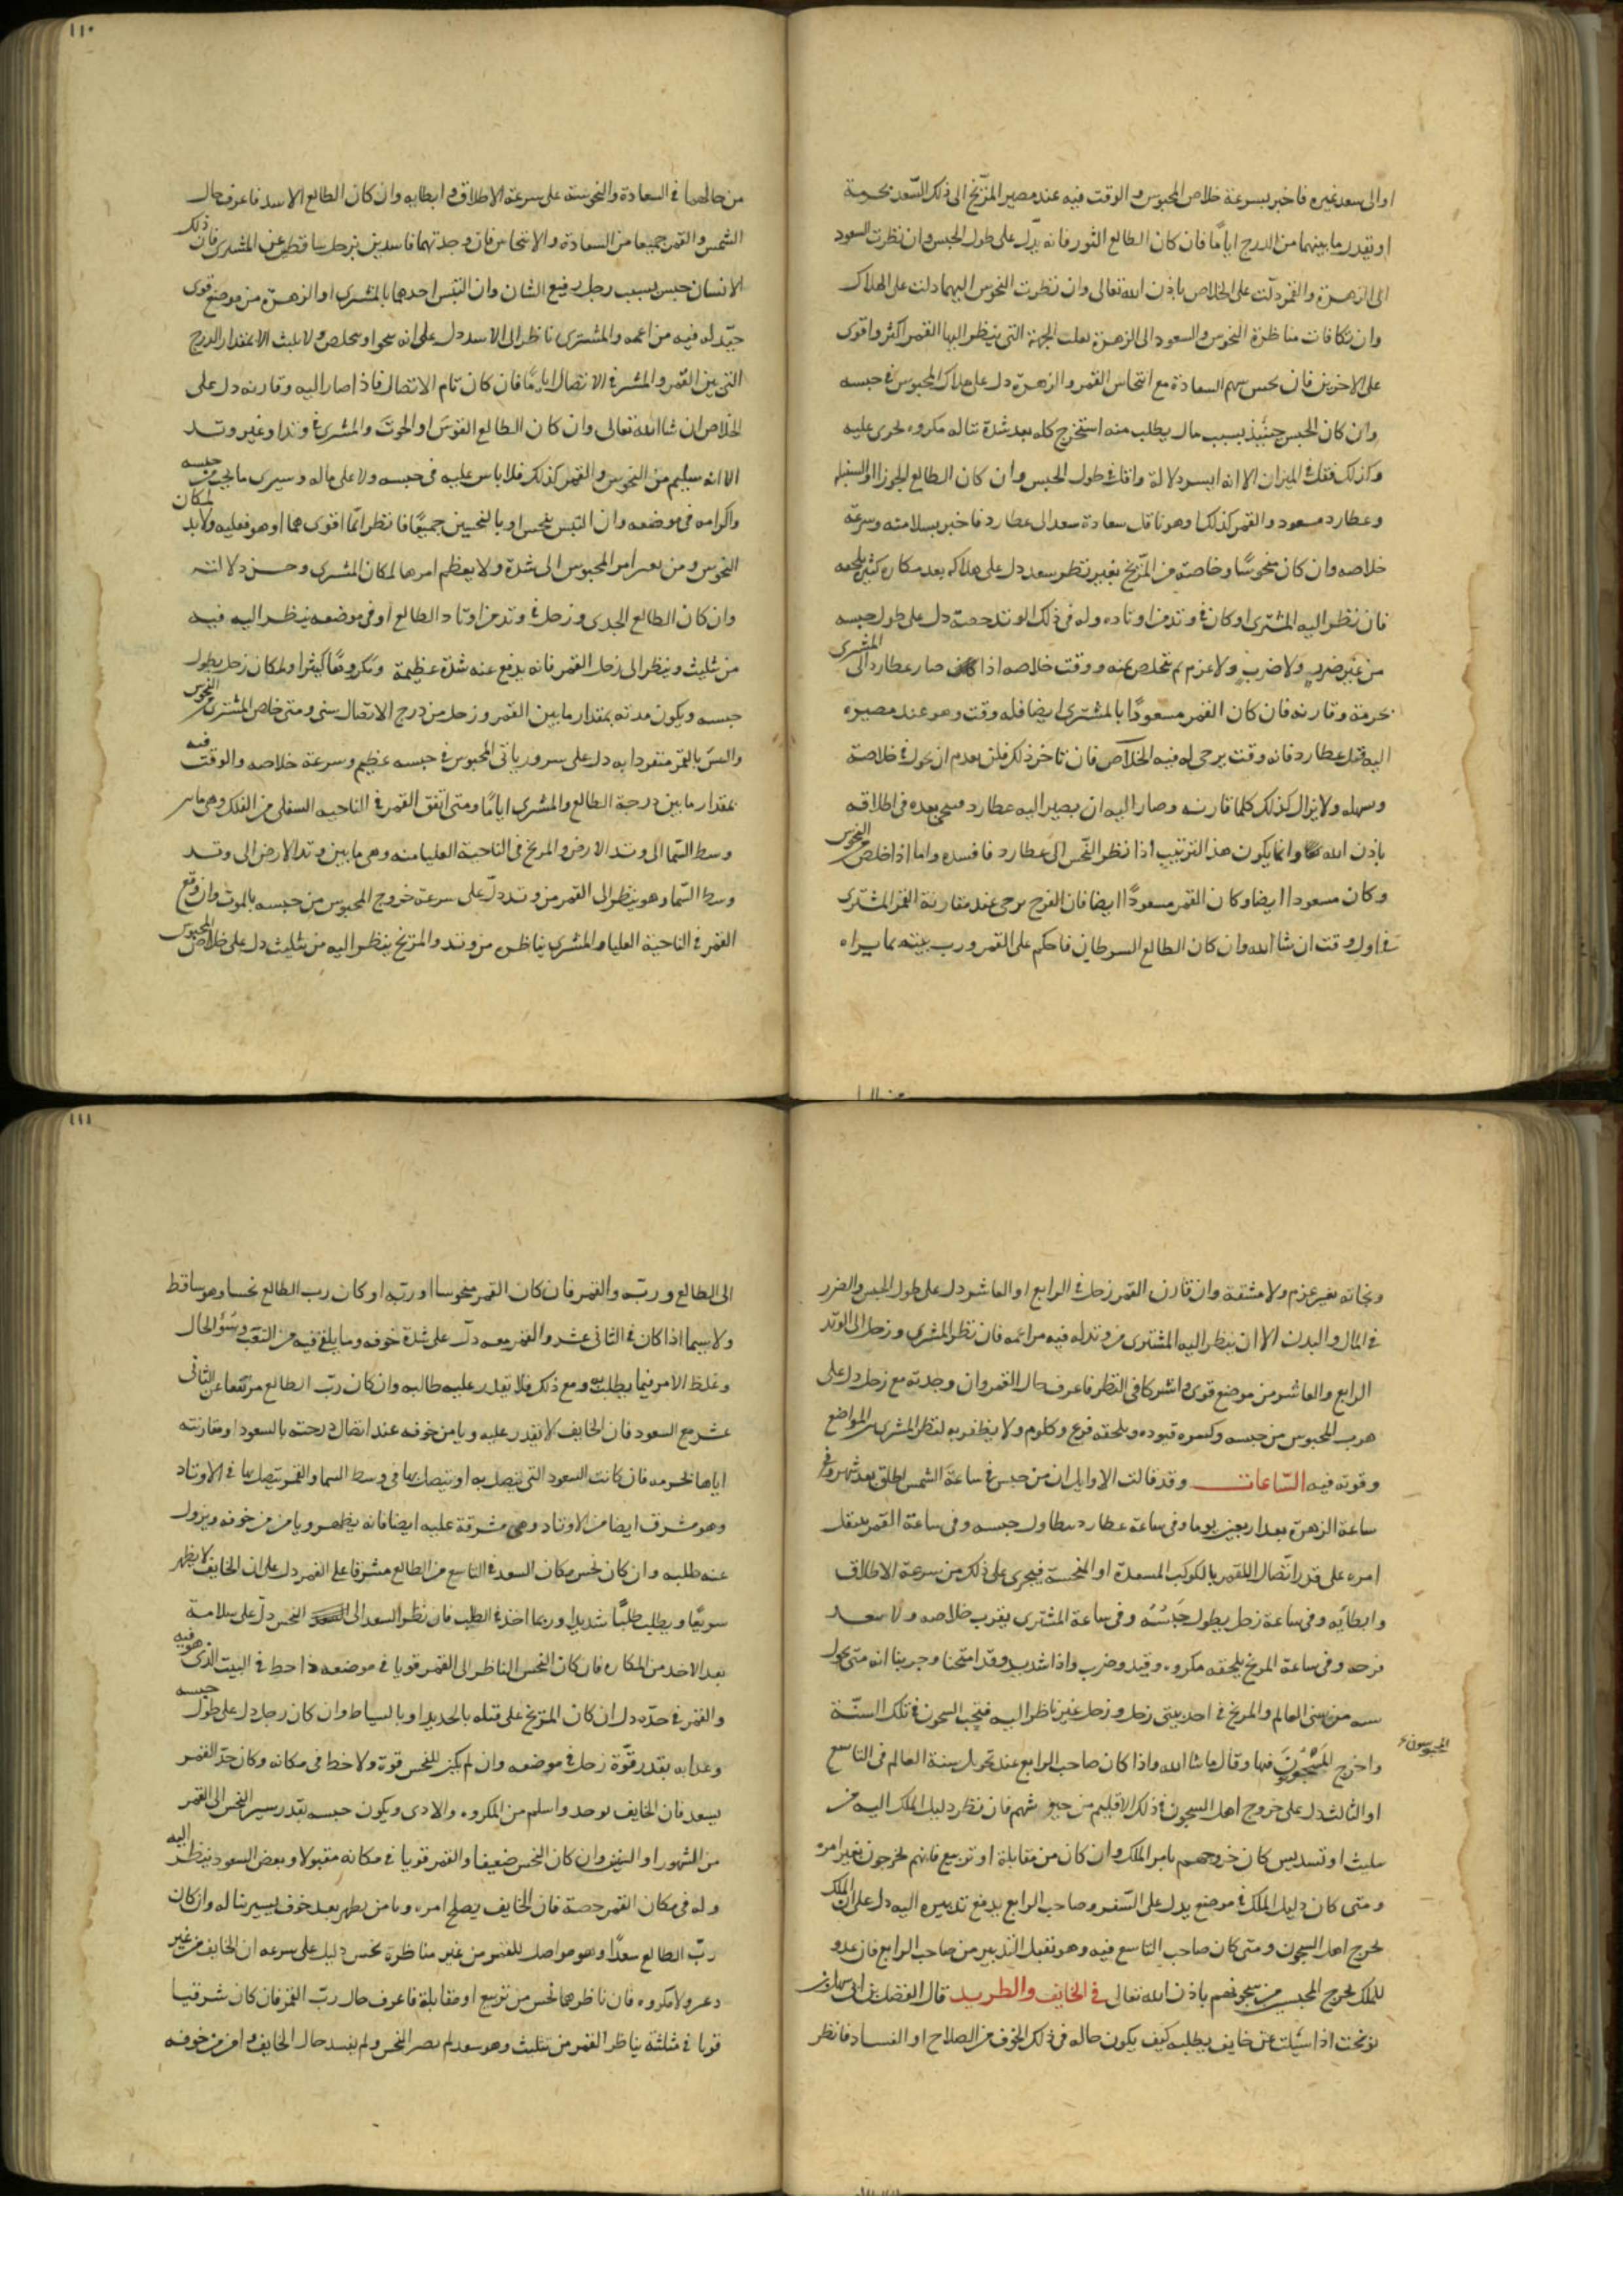 ١١٠
او الى سعد غيره فاخبر بسرعة خلاص المحبوس والوقت فيه عند مصير المرّيخ الى ذلك السّعد بحرمة
او بقدر ما بينهما من الدرج ايامًا فان كان الطالع الثور فانه يدل على طول الحبس وان نظرت السعود
الى الزهرة والقمر دلّت على الخلاص باذن الله تعالى وان نظرت النحوس اليهما دلت على الهلاك
وان تكافات مناظرة النحوس والسعود الى الزهرة نعلت الجهة التى ينظر اليها القمر اكثر واقوى
على الاخرين فان نحس سهم السعادة مع انتحاس القمر والزهرة دل على هلاك المحبوس فى حبسه
وان كان الحبس حينيذ بسبب مال يطلب منه استخرج كله بعد شدة تناله مكروه يجرى عليه
وكذلك فقل فى الميزان الا انه ايسر دلالة واقل فى طول الحبس وان كان الطالع الجوزا او السنبله
وعطارد مسعود والقمر كذلك وهو ناقل سعادة سعد الى عطارد فاخبر بسلامته وسرعة
خلاصه وان كان منحوسًا وخاصة من المرّيخ بغير نظر سعد دل على هلاكه بعد مكاره كثيرة تلحقه
فان نظر اليه المشترى او كان فى وتد من اوتاده وله فى ذلك الوتد حصة دل على طول حبسه
من غير ضرب ولا عزم ثم تخلص منه ووقت خلاصه اذا صار عطارد الى المشترى
بحرمة وقارنه فان كان القمر مسعودًا بالمشترى ايضا فله وقت وهو عند مصيره
اليه قبل عطارد فانه وقت يرجى له فيه الخلاص فان تاخر ذلك فلن يعدم ان يحول فى خلاصه
وسهله ولا يزال كذلك كلما قارنه وصار اليه ان يصير اليه عطارد
باذن الله وانما يكون هذا الترتيب اذا نظر النّحس الى عطارد فافسده واما اذا خلص من النحوس
وكان مسعودا ايضا وكان القمر مسعودًا ايضا فان الفرج يرجى عند مقارنة القمر المشترى
فى اول وقت ان شا الله وان كان الطالع السرطان فاحكم على القمر ورب بيته بما يراه
من حالهما فى السعادة والنحوسة على سرعة الاطلاق وابطايه وان كان الطالع الاسد فاعرف حال
الشمس والقمر جميعا من السعادة والانتحاس فان وجدتهما فاسدين بزحل ساقطين عن المشترى فان ذلك
الانسان حبس بسبب رجل رفيع الشان وان التبس احدهما بالمشترى او الزهرة من موضع قوى
جيّد له فيه مزاعمه والمشترى ناظر الى الاسد دل على انه سينجوا وسيخلص ولا يلبث الا بمقدار الدرج
التى بين القمر والمشترى فى الاتصال ايامًا فان كان تام الاتصال فاذا صار اليه وقارنه دل على
الخلاص ان شا الله تعالى وان كان الطالع القوس او الحوت والمشترى فى وتد او غير وتد
الا انه سليم من النحوس والقمر كذلك فلا باس عليه فى حبسه ولا على ماله وسيرى ما يحب من حبسه
واكرامه فى موضعه وان التبس بنحس او بالنحسين جميعًا فانظر ايّما اقوى هما او هو فعليه ولابد لمكان
النحوس من يعسر امر المحبوس الى شدة ولا يعظم امرها لمكان المشترى وحسن دلالته
وان كان الطالع الجدى وزحل فى وتد من اوتاد الطالع او فى موضعه ينظر اليه فيه
من تثليث وينظر الى زحل القمر فانه يدفع عنه شدة عظيمة ومكروهًا كثيرا ولمكان زحل يطول
حبسه ويكون مدته بمقدار ما بين القمر وزحل من درج الاتصال سنى ومتى خلص المشترى من النحوس
والتبس بالقمر منفردا به دل على سرور ياتى المحبوس فى حبسه عظيم وسرعة خلاصه والوقت فيه
بمقدار ما بين درجة الطالع والمشترى ايامًا ومتى اتفق القمر فى الناحيه السفلى من الفلك وهى ما بين
وسط السّما الى وتد الارض والمريخ فى الناحية العليا منه وهى ما بين وتد الارض الى وتد
وسط السّما وهو ينظر الى القمر من وتد دلّ على سرعة خروج المحبوس من حبسه بالموت وان وقع
القمر فى الناحية العليا والمشترى يناظر من وتد والمرّيخ ينظر اليه من تثليث دل على خلاص المحبوس
١١١
ونجاته بغير عزم ولا مشقة وان قارن القمر زحل فى الرابع او العاشر دل على طول الحبس والضرر
فى المال والبدن الا ان ينظر اليه المشترى من وتد له فيه مزاعمه فان نظر المشترى وزحل الى الوتد
الرابع والعاشر من موضع قوى واشتركا فى النظر فاعرف حال القمر وان وجدته مع زحل دل على
هرب المحبوس من حبسه وكسره قيوده ويلحقه فزع وكلوم ولا يظفر به لنظر المشترى من المواضع
وقوته فيه السّاعات وقد قالت الاوايل ان من حبس فى ساعة الشمس يطلق بعد شهر وفى
ساعة الزهرة بعد اربعين يوما وفى ساعة عطارد يطاول حبسه وفى ساعة القمر ينقل
امره على قدر اتّصال القمر بالكوكب المسعدة او المنحسة فيجرى على ذلك من سرعة الاطلاق
وابطائه وفى ساعة زحل يطول حَبْسُهُ وفى ساعة المشترى يقرب خلاصه ولا يبعد
فرحه وفى ساعة المريخ يلحقه مكروه وقيد وضرب واذا شديد وقد امتحنا وجربنا انه متى تحول
سنه من سنى العالم والمريخ فى احد بيتى زحل وزحل غير ناظر اليه فتحت السجون فى تلك السنّة
واخرج المَسْجُوْنِيْنَ فيها وقال ماشا الله واذا كان صاحب الرابع عند تحويل سنة العالم فى التاسع
المحبوسون
او الثالث دل على خروج اهل السجون فى ذلك الاقليم من حبوسهم فان نظر دليل الملك اليه من
تثليث او تسديس كان خروجهم بامر الملك وان كان من مقابلة او تربيع فانهم يخرجون بغير امره
ومتى كان دليل الملك فى موضع يدل على السّفر وصاحب الرابع يدفع تدبيره اليه دل على ان الملك
يخرج اهل السجون ومتى كان صاحب التاسع فيه وهو يقبل التدبير من صاحب الرابع فان عدو
للملك يخرج المحبسين من سجونهم باذن الله تعالى فى الخايف والطريد قال الفضل بن ابى سهل بن
نوبخت اذا سُئلت عن خايف يطلبه كيف يكون حاله فى ذلك الخوف من الصلاح او الفساد فانظر
الى الطالع وربّه والقمر فان كان القمر منحوسا او ربّه او كان رب الطالع نحسا وهو ساقط
ولا سيما اذا كان فى الثانى عشر والقمر معه دلّ على شدة خوفه وما يلقى فيه من التعَب وسُؤ الحال
وغلظ الامر فيما يطلب به ومع ذلك فلا يقدر عليه طالبه وان كان ربّ الطالع مرتفعا عن الثانى
عشر مع السعود فان الخايف لا يقدر عليه ويامن خوفه عند اتصال درجته بالسعود او مقارنته
اياها بجرمه فان كانت السعود التى يتصل به او يتصل بها فى وسط السما والقمر يتصل بها فى الاوتاد
وهو مشرف ايضا من الاوتاد وهى مشرقة عليه ايضا فانه يظهر ويامن من خوفه ويزول
عنه طلبه وان كان نحس مكان السعد فى التاسع من الطالع مشرفا على القمر دل على ان الخايف لا يظهر
سريعًا ويطلب طلبًا شديدا وربما اخذ فى الطلب فان نظر السعد الى النحس دلّ على سلامة
بعد الاخذ من المكاره فان كان النحس الناظر الى القمر قويا فى موضعه ذا حظ فى البيت الذى هو فيه
والقمر فى حدّه دل ان كان المرّيخ على قتله بالحديد او بالسياط وان كان زحل دل على طول حبسه
وعذابه بقدر قوّة زحل فى موضعه وان لم يكن للنحس قوة ولا حظ فى مكانه وكان حدّ القمر
بسعد فان الخايف يوخذ واسلم من المكروه والاذى ويكون حبسه بقدر سير النحس الى القمر
من الشهور او السنين وان كان النحس ضعيفا والقمر قويا فى مكانه مقبولا وبعض السعود ينظر اليه
وله فى مكان القمر حصة فان الخايف يصلح امره ويامن يظهر بعد خوف يسير يناله وان كان
ربّ الطالع سعدًا وهو مواصل للقمر من غير مناظرة نحس دليل على سرعه ان الخايف من غير
ذعر ولا مكروه فان ناظرهما نحس من تربيع او مقابلة فاعرف حال ربّ القمر فان كان شرقيا
قويا فى مثلثة يناظر القمر من تثليث وهو سعد لم يضر النحس ولم يفسد حال الخايف وامن من خوفه